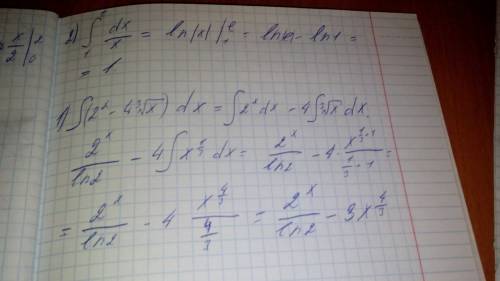 x/2 |₀²
2) ∫₁ᵉ dx/x = ln|x| |₁ᵉ = ln e - ln1 =
= 1
1) ∫(2ˣ - 4∛x) dx = ∫2ˣdx - 4∫∛x dx.
2ˣ/ln2 - 4∫x^(1/3) dx = 2ˣ/ln2 - 4·x^(1/3+1)/(1/3+1) =
= 2ˣ/ln2 - 4 x^(4/3)/(4/3) = 2ˣ/ln2 - 3x^(4/3)